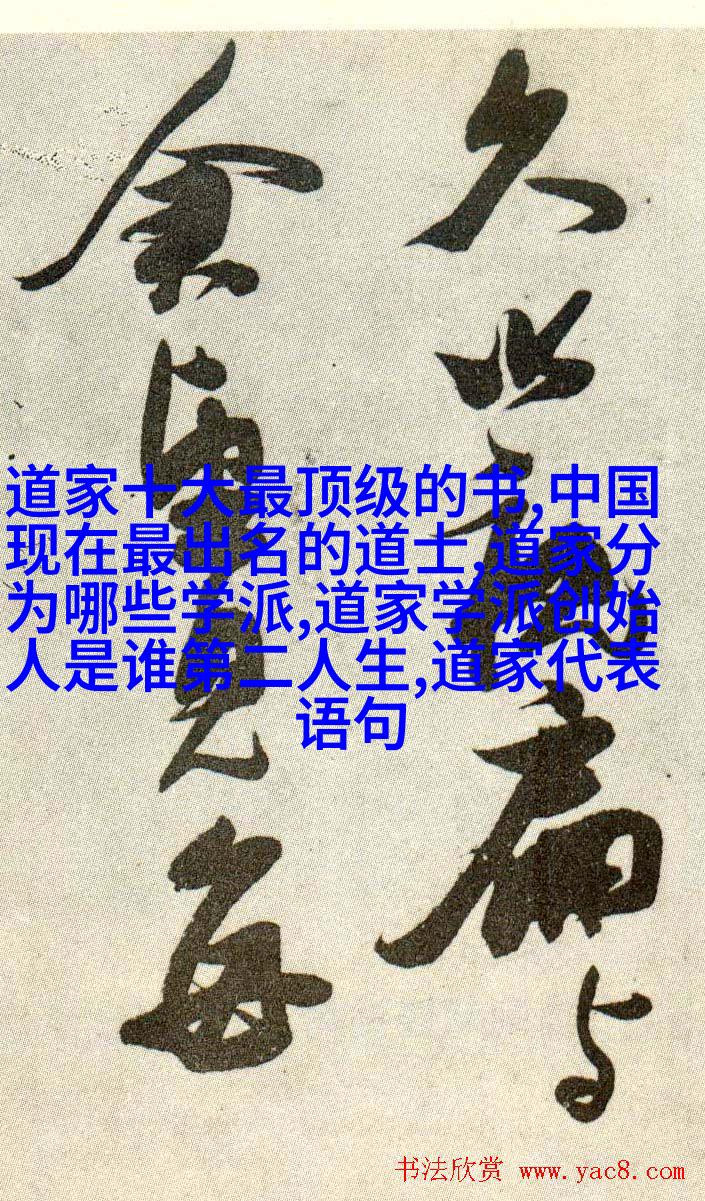 久扁与
余見每
道家十大最顶级的书,中国
现在最出名的道士,道家分
为哪些学派,道家学派创始
人是谁第二人生,道家代表
语句
书法欣赏 www.yac8.com